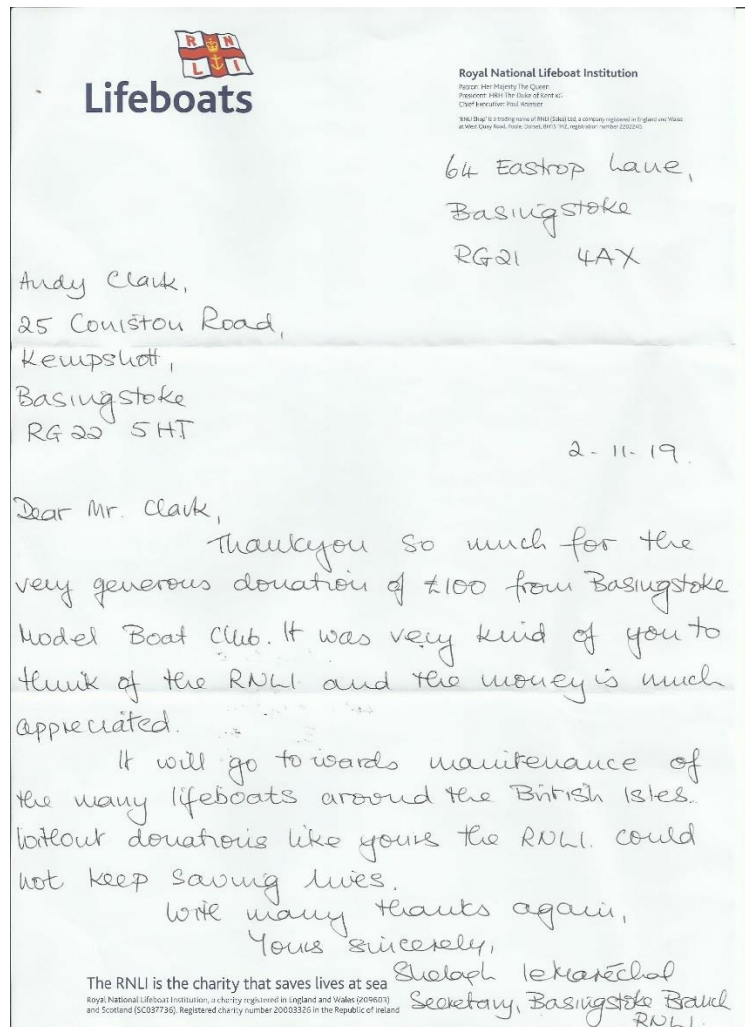 R N
L I
Lifeboats
Royal National Lifeboat Institution
Patron: Her Majesty The Queen
President: HRH The Duke of Kent KG
Chief Executive: Paul Boissier
'RNLI Shop' is a trading name of RNLI (Sales) Ltd, a company registered in England and Wales
at West Quay Road, Poole, Dorset, BH15 1HZ, registration number 2202240.
64 Eastrop Lane,
Basingstoke
RG21 4AX
Andy Clark,
25 Coniston Road,
Kempshott,
Basingstoke
RG22 5HT
2-11-19.
Dear Mr. Clark,
Thankyou so much for the
very generous donation of £100 from Basingstoke
Model Boat Club. It was very kind of you to
think of the RNLI and the money is much
appreciated.
It will go towards maintenance of
the many lifeboats around the British Isles.
Without donations like yours the RNLI. could
not keep saving lives.
With many thanks again,
Yours sincerely,
Shelagh leMaréchal
Secretary, Basingstoke Branch
RNLI.
The RNLI is the charity that saves lives at sea
Royal National Lifeboat Institution, a charity registered in England and Wales (209603)
and Scotland (SC037736). Registered charity number 20003326 in the Republic of Ireland